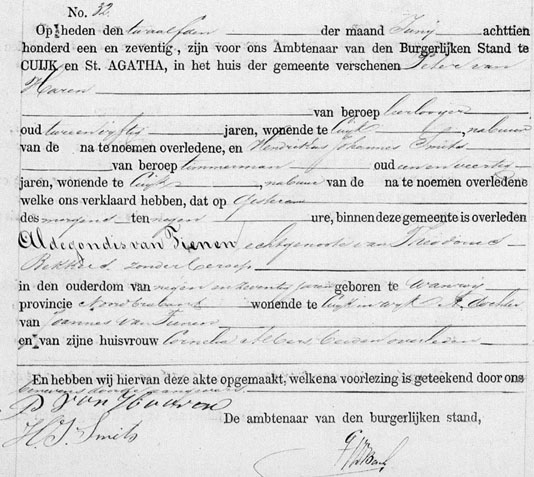 No. 32.
Op heden den twaalfden der maand Junij achttien
honderd een en zeventig, zijn voor ons Ambtenaar van den Burgerlijken Stand te
CUIJK en St. AGATHA, in het huis der gemeente verschenen Peter van
Haren
van beroep leerlooijer
oud jaren, wonende te Cuijk, nabuur
van de na te noemen overledene, en Hendrikus Johannes Smits
van beroep timmerman oud een en veertig
jaren, wonende te Cuijk, nabuur van de na te noemen overledene
welke ons verklaard hebben, dat op gisteren
des morgens ten negen ure, binnen deze gemeente is overleden
Aldegondis van Tienen, echtgenoote van Theodorus
Bekkers, zonder beroep
in den ouderdom van negen en zeventig jaren geboren te Wanroij
provincie Noordbrabant wonende te Cuijk in wijk A, dochter
van Joannes van Tienen
en van zijne huisvrouw Cornelia Albers beiden overleden
En hebben wij hiervan deze akte opgemaakt, welke na voorlezing is geteekend door ons
P van Haaren
De ambtenaar van den burgerlijken stand,
H. J. Smits